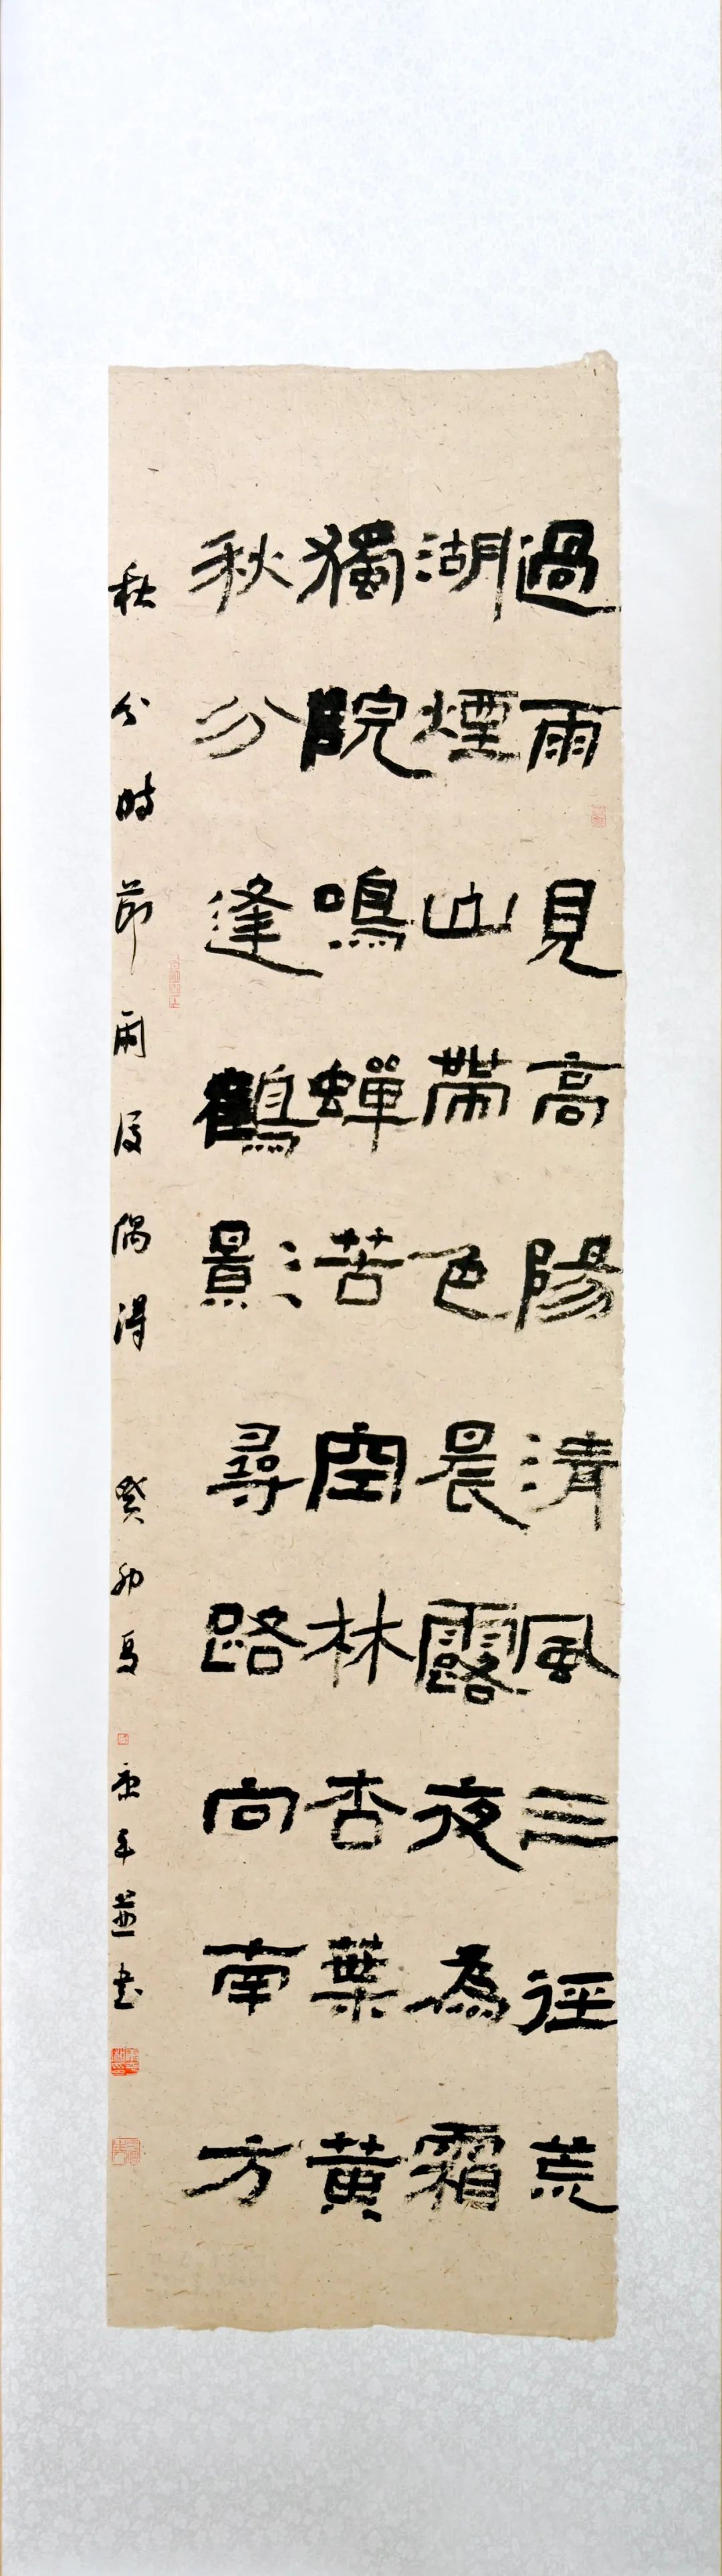 過雨見高陽清風三徑荒
湖煙山帶色晨露夜為霜
獨院鳴蟬苦空林杏葉黃
秋分逢鶴影尋路向南方
秋分時節雨後偶得 癸卯夏 康平並书